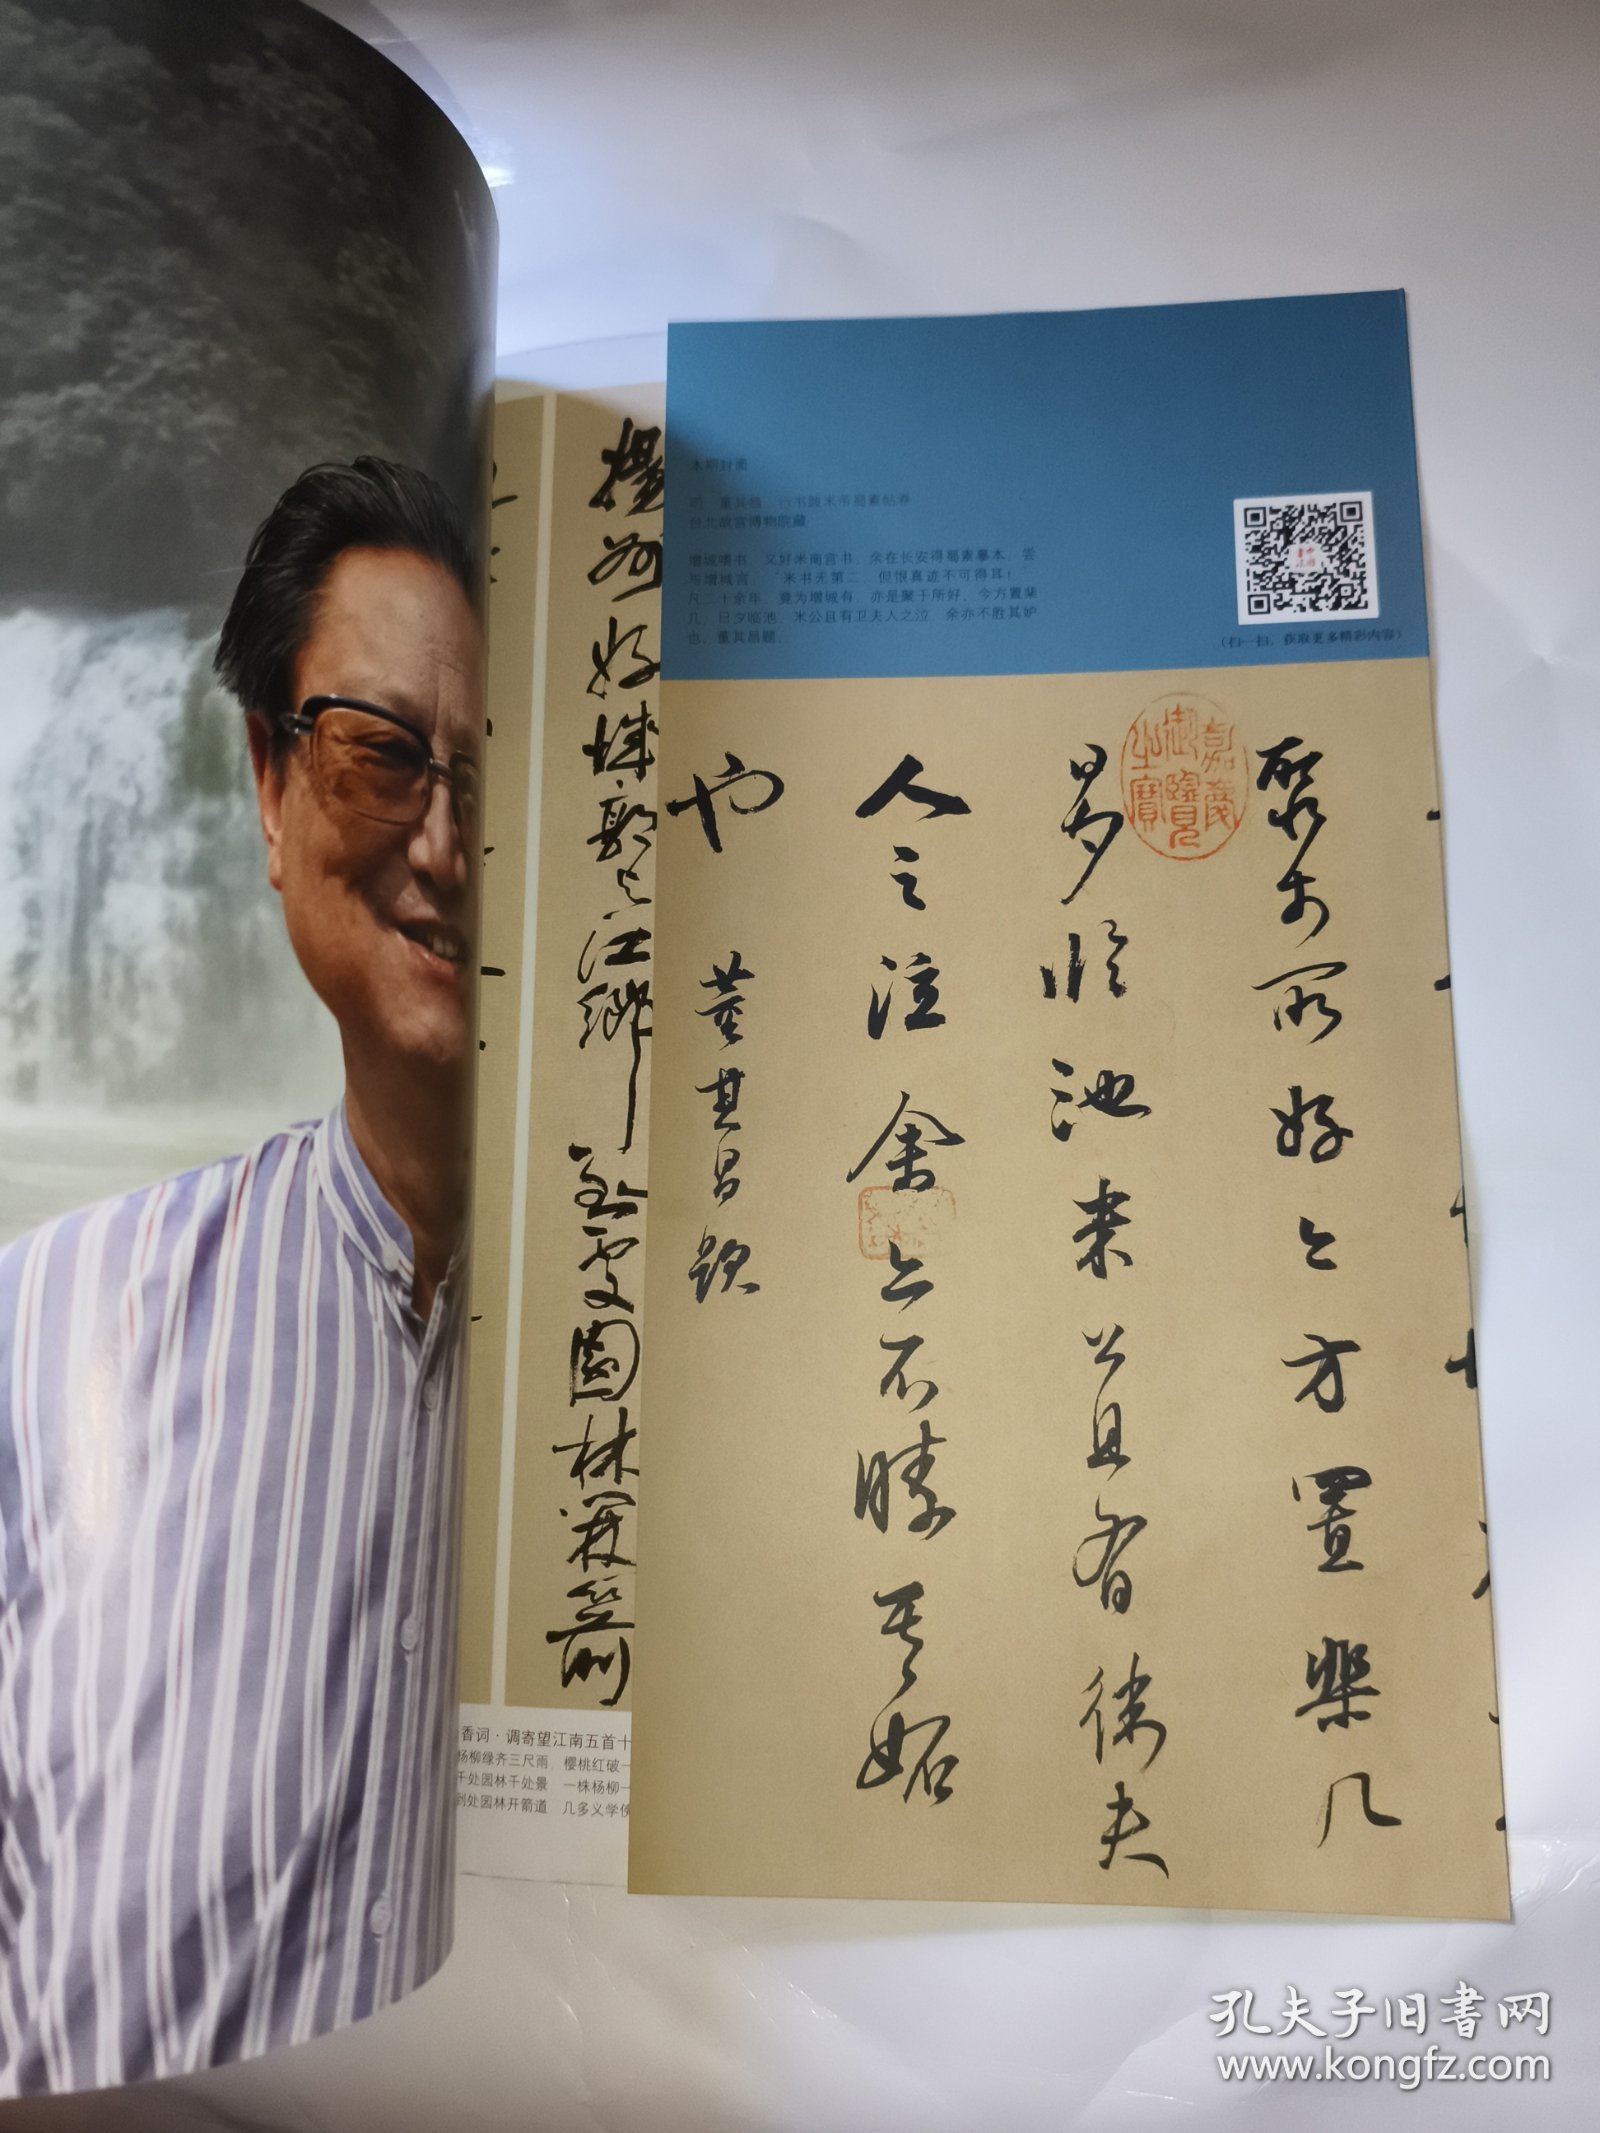 本期封面
明 董其昌 行书跋米芾蜀素帖卷
台北故宫博物院藏
增城嗜书，又好米南宫书，余在长安得蜀素摹本，尝
与增城言，“米书无第二，但恨真迹不可得耳！”
凡二十余年，竟为增城有，亦是聚于所好。今方置棐
几，日夕临池，米公且有卫夫人之泣，余亦不胜其妒
也。董其昌题。
（扫一扫，获取更多精彩内容）
聚于所好今方置棐几
日夕临池米公且有衛夫
人之泣余亦不勝其妬
也 董其昌题
嘉慶
御覽
之寶
揚州好城郭已江鄉到處園林開箭
香词·调寄望江南五首十
杨柳绿齐三尺雨 樱桃红破一
千处园林千处景 一株杨柳一
到处园林开箭道 几多义学傍
孔夫子旧书网
www.kongfz.com